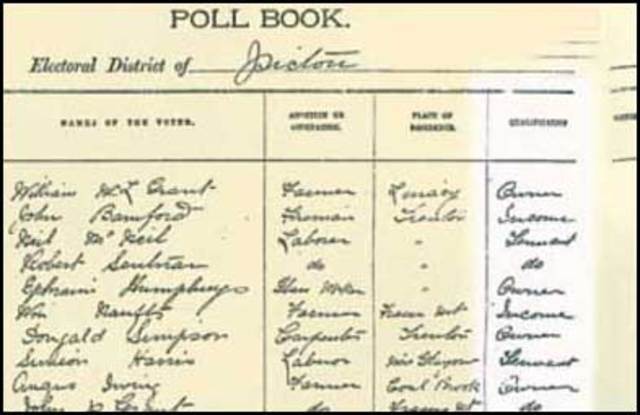 POLL BOOK.
Electoral District of Pictou
NAMES OF THE VOTER. ADDITION OR OCCUPATION. PLACE OF RESIDENCE. QUALIFICATION
William Grant Farmer Owner
John Bamford Fireman Trenton Income
Neil McNeil Laborer " Tennant
Robert do " do
Ephraim Humphreys Glass Worker " Owner
Wm Naufts Farmer Income
Dougald Simpson Carpenter Trenton Owner
Simeon Harris Laborer New Glasgow Tennant
Angus Irving Farmer Coal Brook Owner
John Grant do do